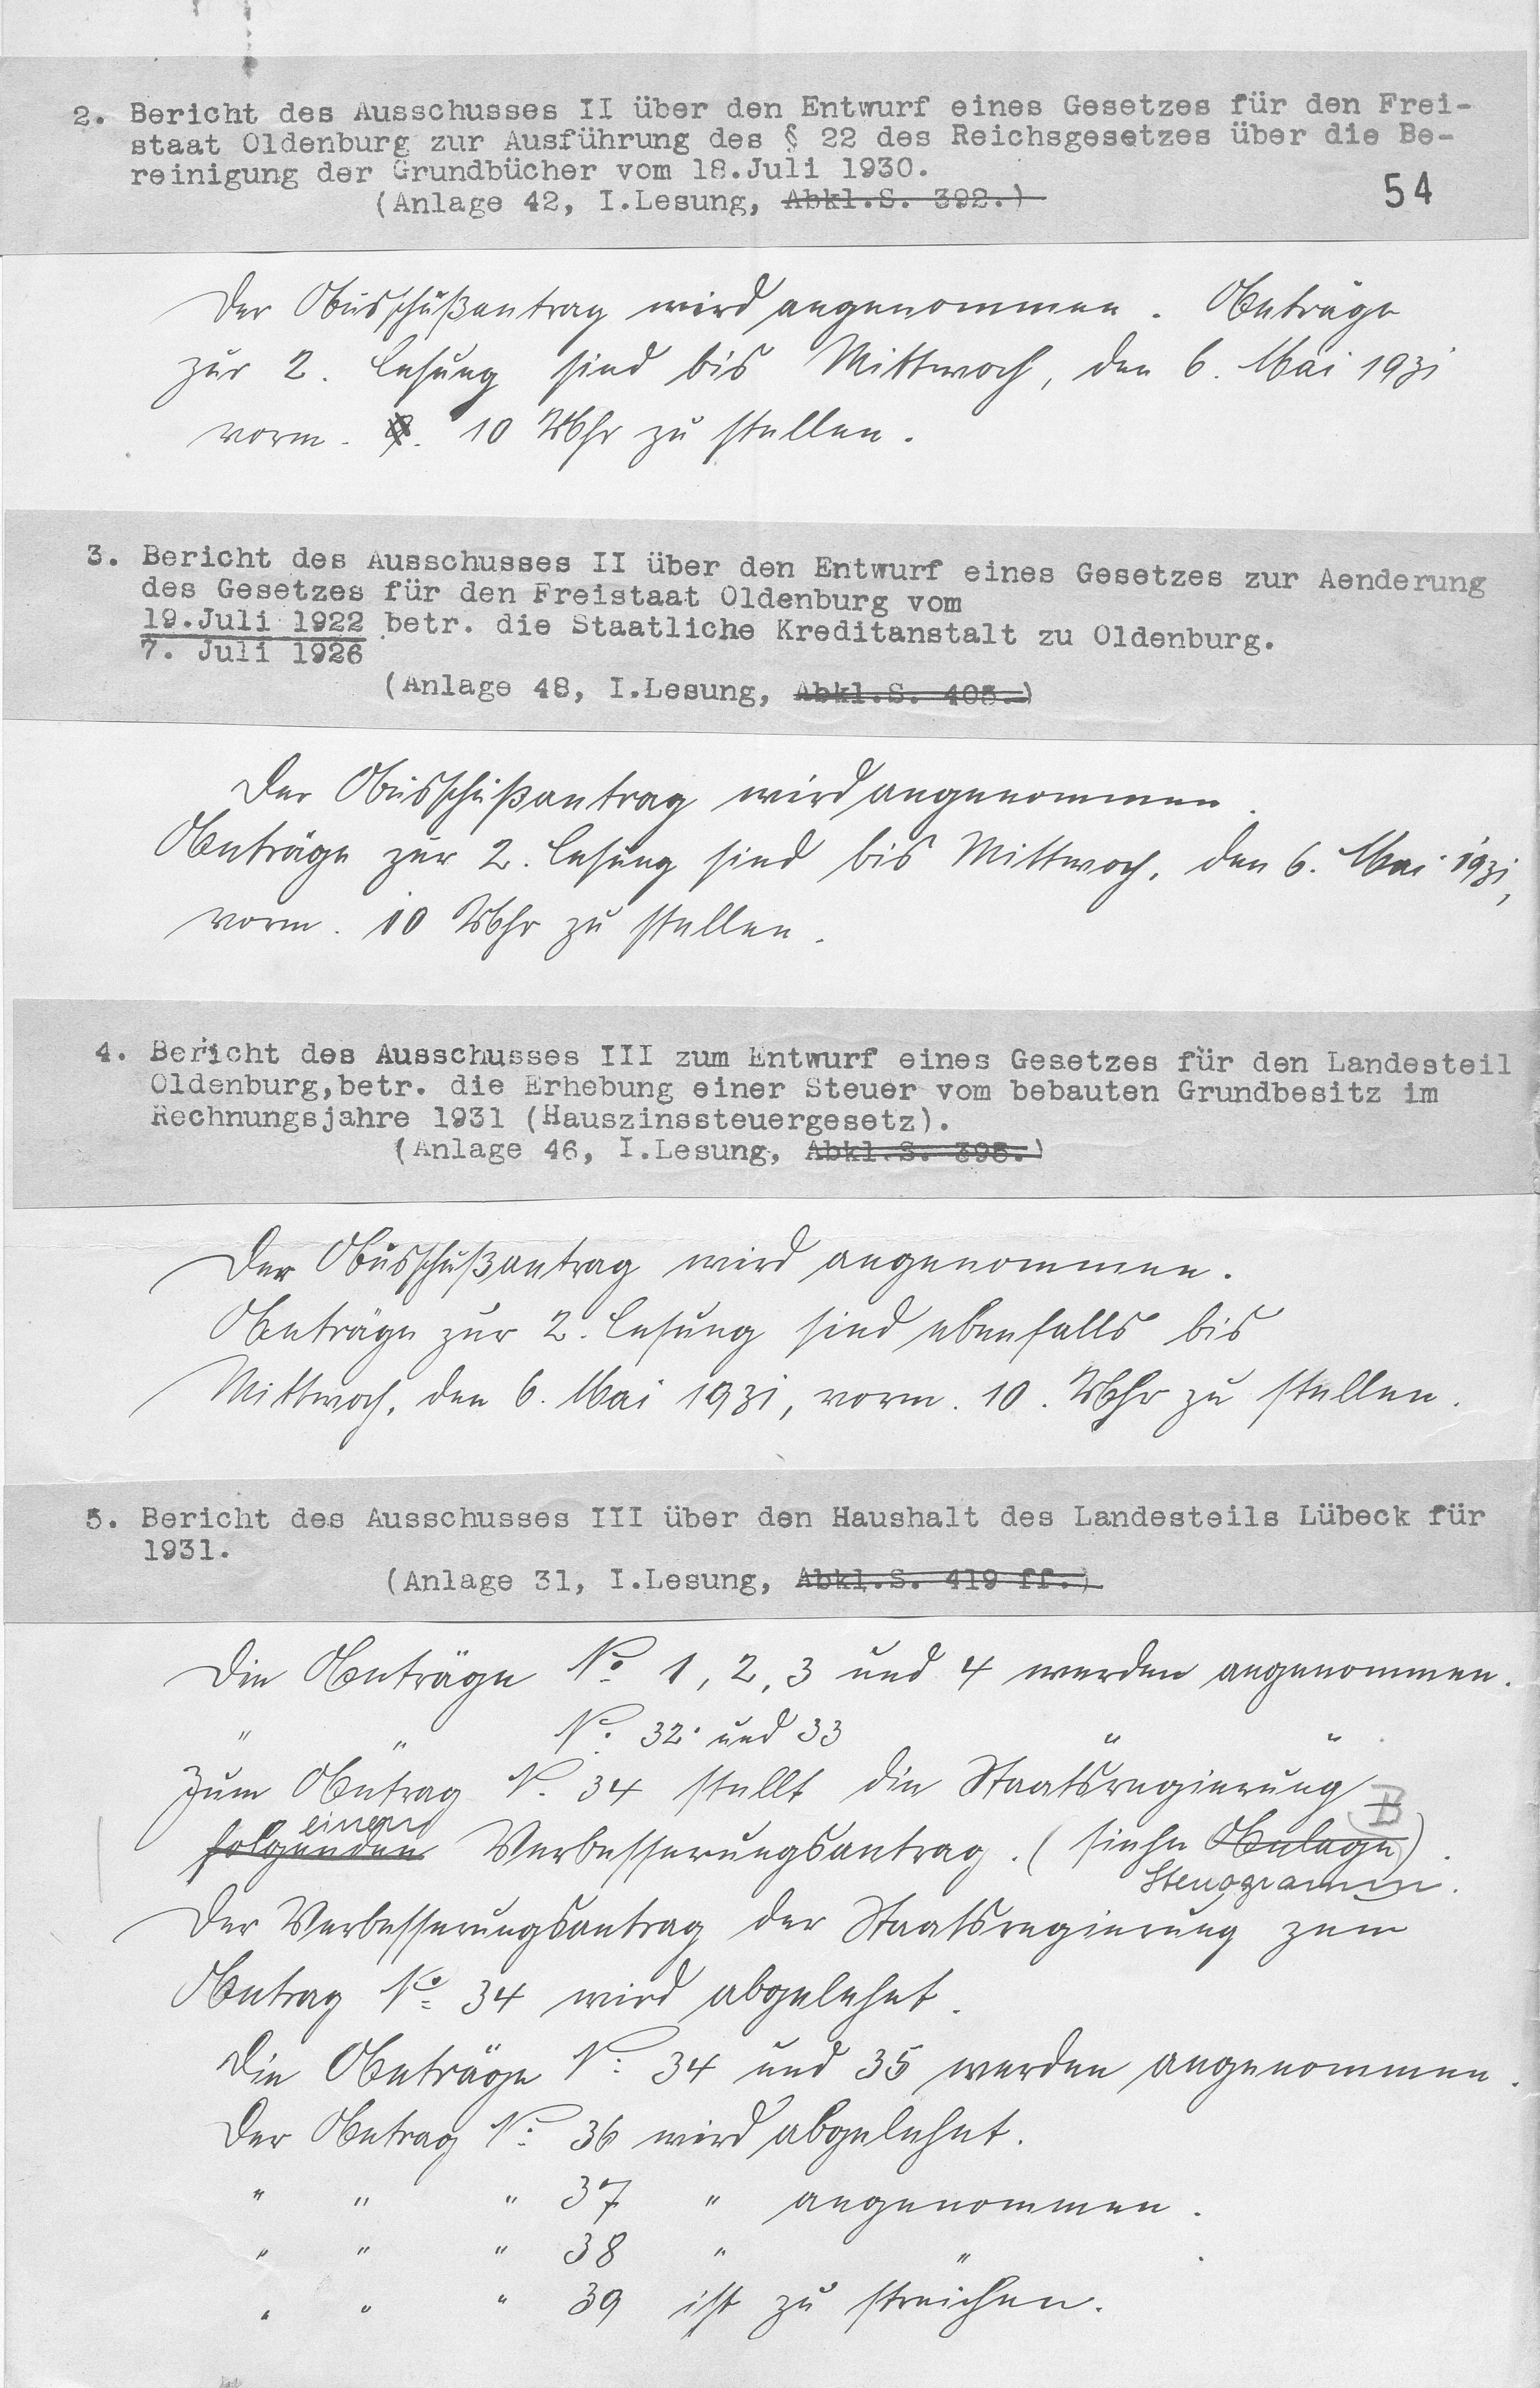 2. Bericht des Ausschusses II über den Entwurf eines Gesetzes für den Frei-
staat Oldenburg zur Ausführung des § 22 des Reichsgesetzes über die Be-
reinigung der Grundbücher vom 18.Juli 1930.
(Anlage 42, I.Lesung, Abkl.S. 392.)
54
Der Ausschußantrag wird angenommen. Anträge
zur 2. Lesung sind bis Mittwoch, den 6. Mai 1931
vorm. 10 Uhr zu stellen.
3. Bericht des Ausschusses II über den Entwurf eines Gesetzes zur Aenderung
des Gesetzes für den Freistaat Oldenburg vom
19.Juli 1922 betr. die Staatliche Kreditanstalt zu Oldenburg.
7. Juli 1926
(Anlage 48, I.Lesung, Abkl.S. 405.)
Der Ausschußantrag wird angenommen.
Anträge zur 2. Lesung sind bis Mittwoch, den 6. Mai 1931,
vorm. 10 Uhr zu stellen.
4. Bericht des Ausschusses III zum Entwurf eines Gesetzes für den Landesteil
Oldenburg,betr. die Erhebung einer Steuer vom bebauten Grundbesitz im
Rechnungsjahre 1931 (Hauszinssteuergesetz).
(Anlage 46, I.Lesung, Abkl.S. 395.)
Der Ausschußantrag wird angenommen.
Anträge zur 2. Lesung sind ebenfalls bis
Mittwoch, den 6. Mai 1931, vorm. 10. Uhr zu stellen.
5. Bericht des Ausschusses III über den Haushalt des Landesteils Lübeck für
1931.
(Anlage 31, I.Lesung, Abkl.S. 419 ff.)
Die Anträge No. 1, 2, 3 und 4 werden angenommen.
" " No. 32 und 33 " " .
Zum Antrag N. 34 stellt die Staatsregierung
einen B
folgenden Verbesserungsantrag. (siehe Anlage).
Stenogramm.
Der Verbesserungsantrag der Staatsregierung zum
Antrag No. 34 wird abgelehnt.
Die Anträge N. 34 und 35 werden angenommen.
Der Antrag N. 36 wird abgelehnt.
" " " 37 " angenommen.
" " " 38 " " .
" " " 39 ist zu streichen.